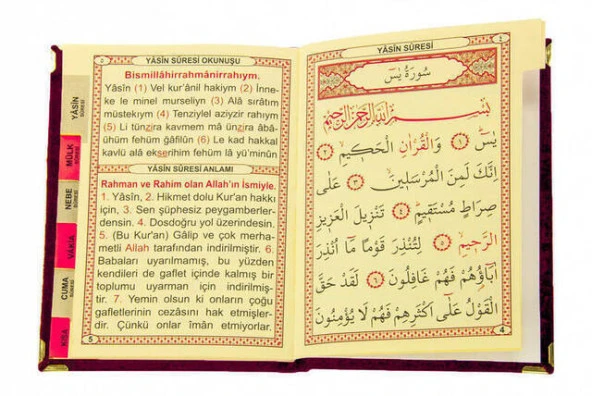 YÂSİN SÛRESİ OKUNUŞU
Bismillâhirrahmânirrahıym.
Yâsîn (1) Vel kur'ânil hakiym (2) İnne-
ke le minel murseliyn (3) Alâ sıratım
müstekıym (4) Tenziylel aziyzir rahıym
(5) Li tünzira kavmem mâ ünzira âbâ-
ühüm fehüm ğâfilûn (6) Le kad hakkal
kavlü alâ ekserihim fehüm lâ yü'minûn
YÂSİN SÛRESİ ANLAMI
Rahman ve Rahim olan Allah'ın İsmiyle.
1. Yâsîn, 2. Hikmet dolu Kur'an hakkı
için, 3. Sen şüphesiz peygamberler-
densin. 4. Dosdoğru yol üzerindesin.
5. (Bu Kur'an) Gâlip ve çok merha-
metli Allah tarafından indirilmiştir. 6.
Babaları uyarılmamış, bu yüzden
kendileri de gaflet içinde kalmış bir
toplumu uyarman için indirilmiş-
tir. 7. Yemin olsun ki onların çoğu
gafletlerinin cezasını hak etmişler-
dir. Çünkü onlar îmân etmiyorlar.
5
YÂSİN SÛRESİ
MÜLK SÛRESİ
NEBE SÛRESİ
VAKIA
CUMA SÛRESİ
KISA
YÂSİN SÛRESİ
سُورَةُ يٰسٓ
بِسْمِ اللّٰهِ الرَّحْمٰنِ الرَّحِيمِ
يٰسٓ ﴿١﴾ وَالْقُرْاٰنِ الْحَكِيمِ ﴿٢﴾
اِنَّكَ لَمِنَ الْمُرْسَلِينَ ﴿٣﴾ عَلٰى
صِرَاطٍ مُسْتَقِيمٍ ﴿٤﴾ تَنْزِيلَ الْعَزِيزِ
الرَّحِيمِ ﴿٥﴾ لِتُنْذِرَ قَوْمًا مَٓا اُنْذِرَ
اٰبَٓاؤُهُمْ فَهُمْ غَافِلُونَ ﴿٦﴾ لَقَدْ حَقَّ
الْقَوْلُ عَلٰٓى اَكْثَرِهِمْ فَهُمْ لَا يُؤْمِنُونَ
4